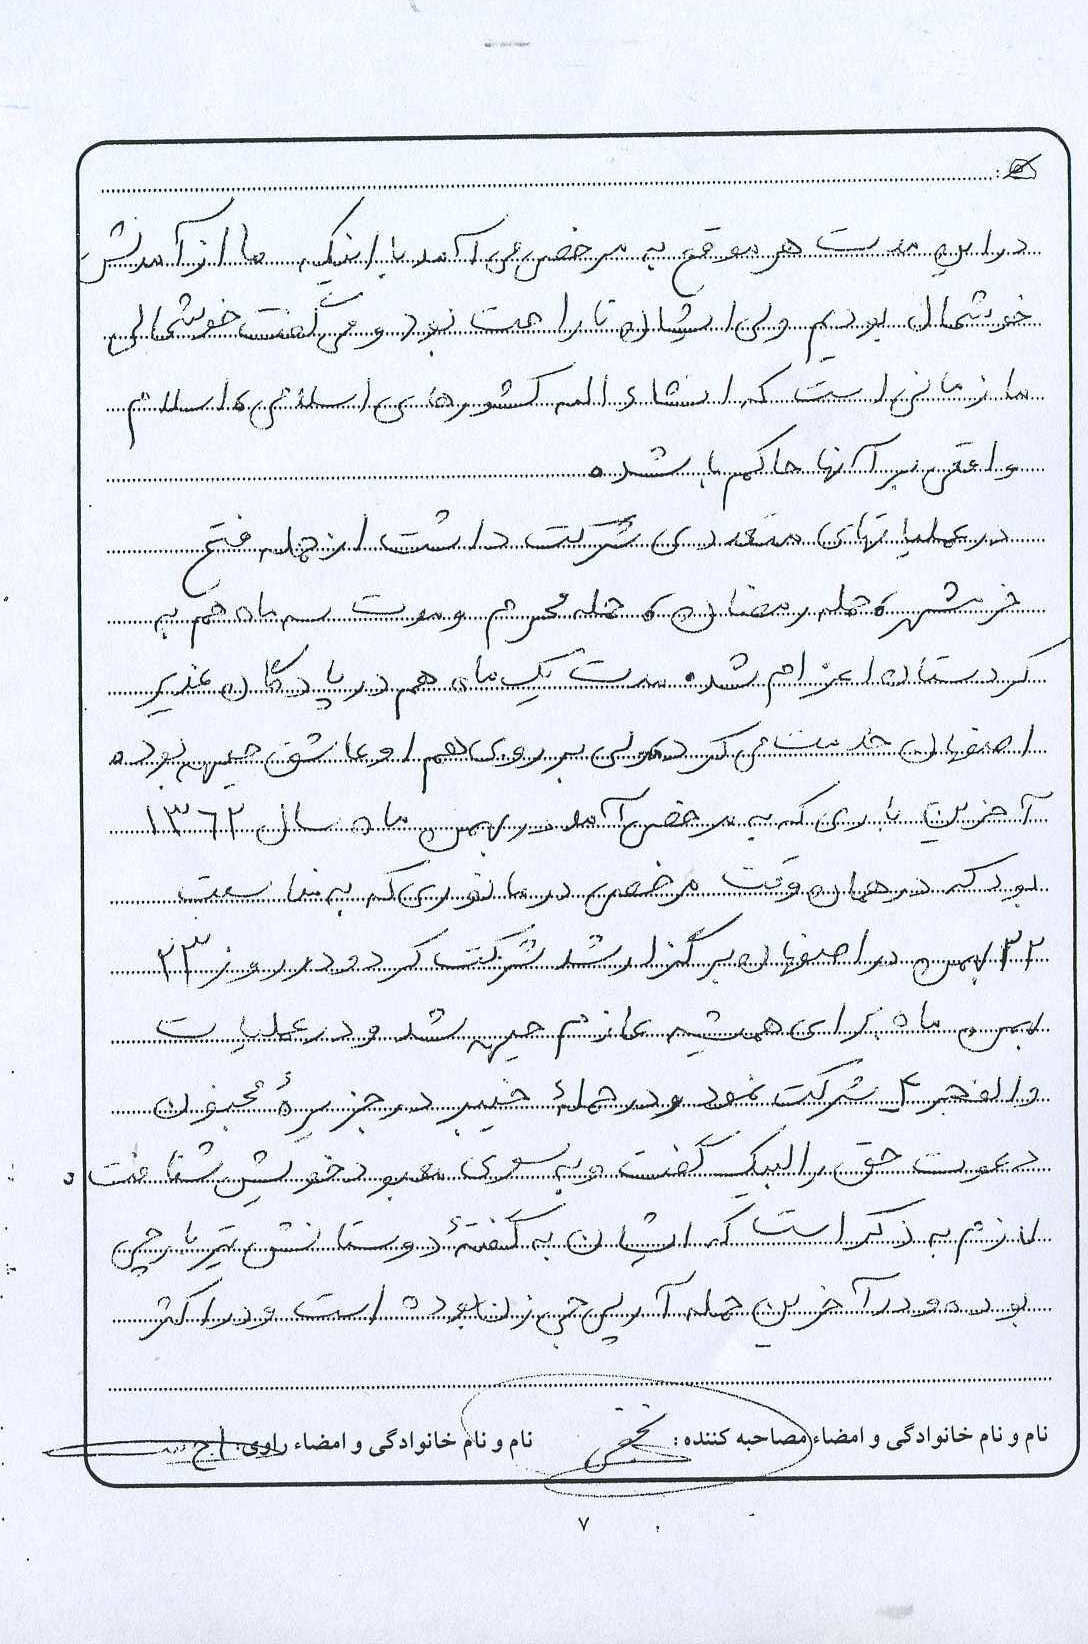 در این مدت هر موقع به مرخصی می آمد با اینکه ما از آمدنش
خوشحال بودیم ولی ایشان ناراحت بود و می گفت خوشحالی
ما زمانی است که انشاء الله کشورهای اسلامی، اسلام
واقعی بر آنها حاکم باشد.
در عملیاتهای متعددی شرکت داشت از جمله فتح
خرمشهر، حمله رمضان، حمله محرم و مدت سه ماه هم به
کردستان اعزام شد. مدت یک ماه هم در پادگان غدیر
اصفهان خدمت می کرد، ولی بر روی هم او عاشق جبهه بود.
آخرین باری که به مرخصی آمد در بهمن ماه سال ۱۳۶۲
بود که در همان وقت مرخصی در مانوری که به مناسبت
۲۲ بهمن در اصفهان برگزار شد شرکت کرد و در روز ۲۳
بهمن ماه برای همیشه عازم جبهه شد و در عملیات
والفجر ۴ شرکت نمود و در حملهٔ خیبر در جزیرهٔ مجنون
دعوت حق را لبیک گفت و به سوی معبود خویش شتافت.
لازم به ذکر است که ایشان به گفتهٔ دوستانش تیربارچی
بوده و در آخرین حمله آرپی جی زن بوده است و در اکثر
نام و نام خانوادگی و امضاء مصاحبه کننده: نام و نام خانوادگی و امضاء راوی:
۷